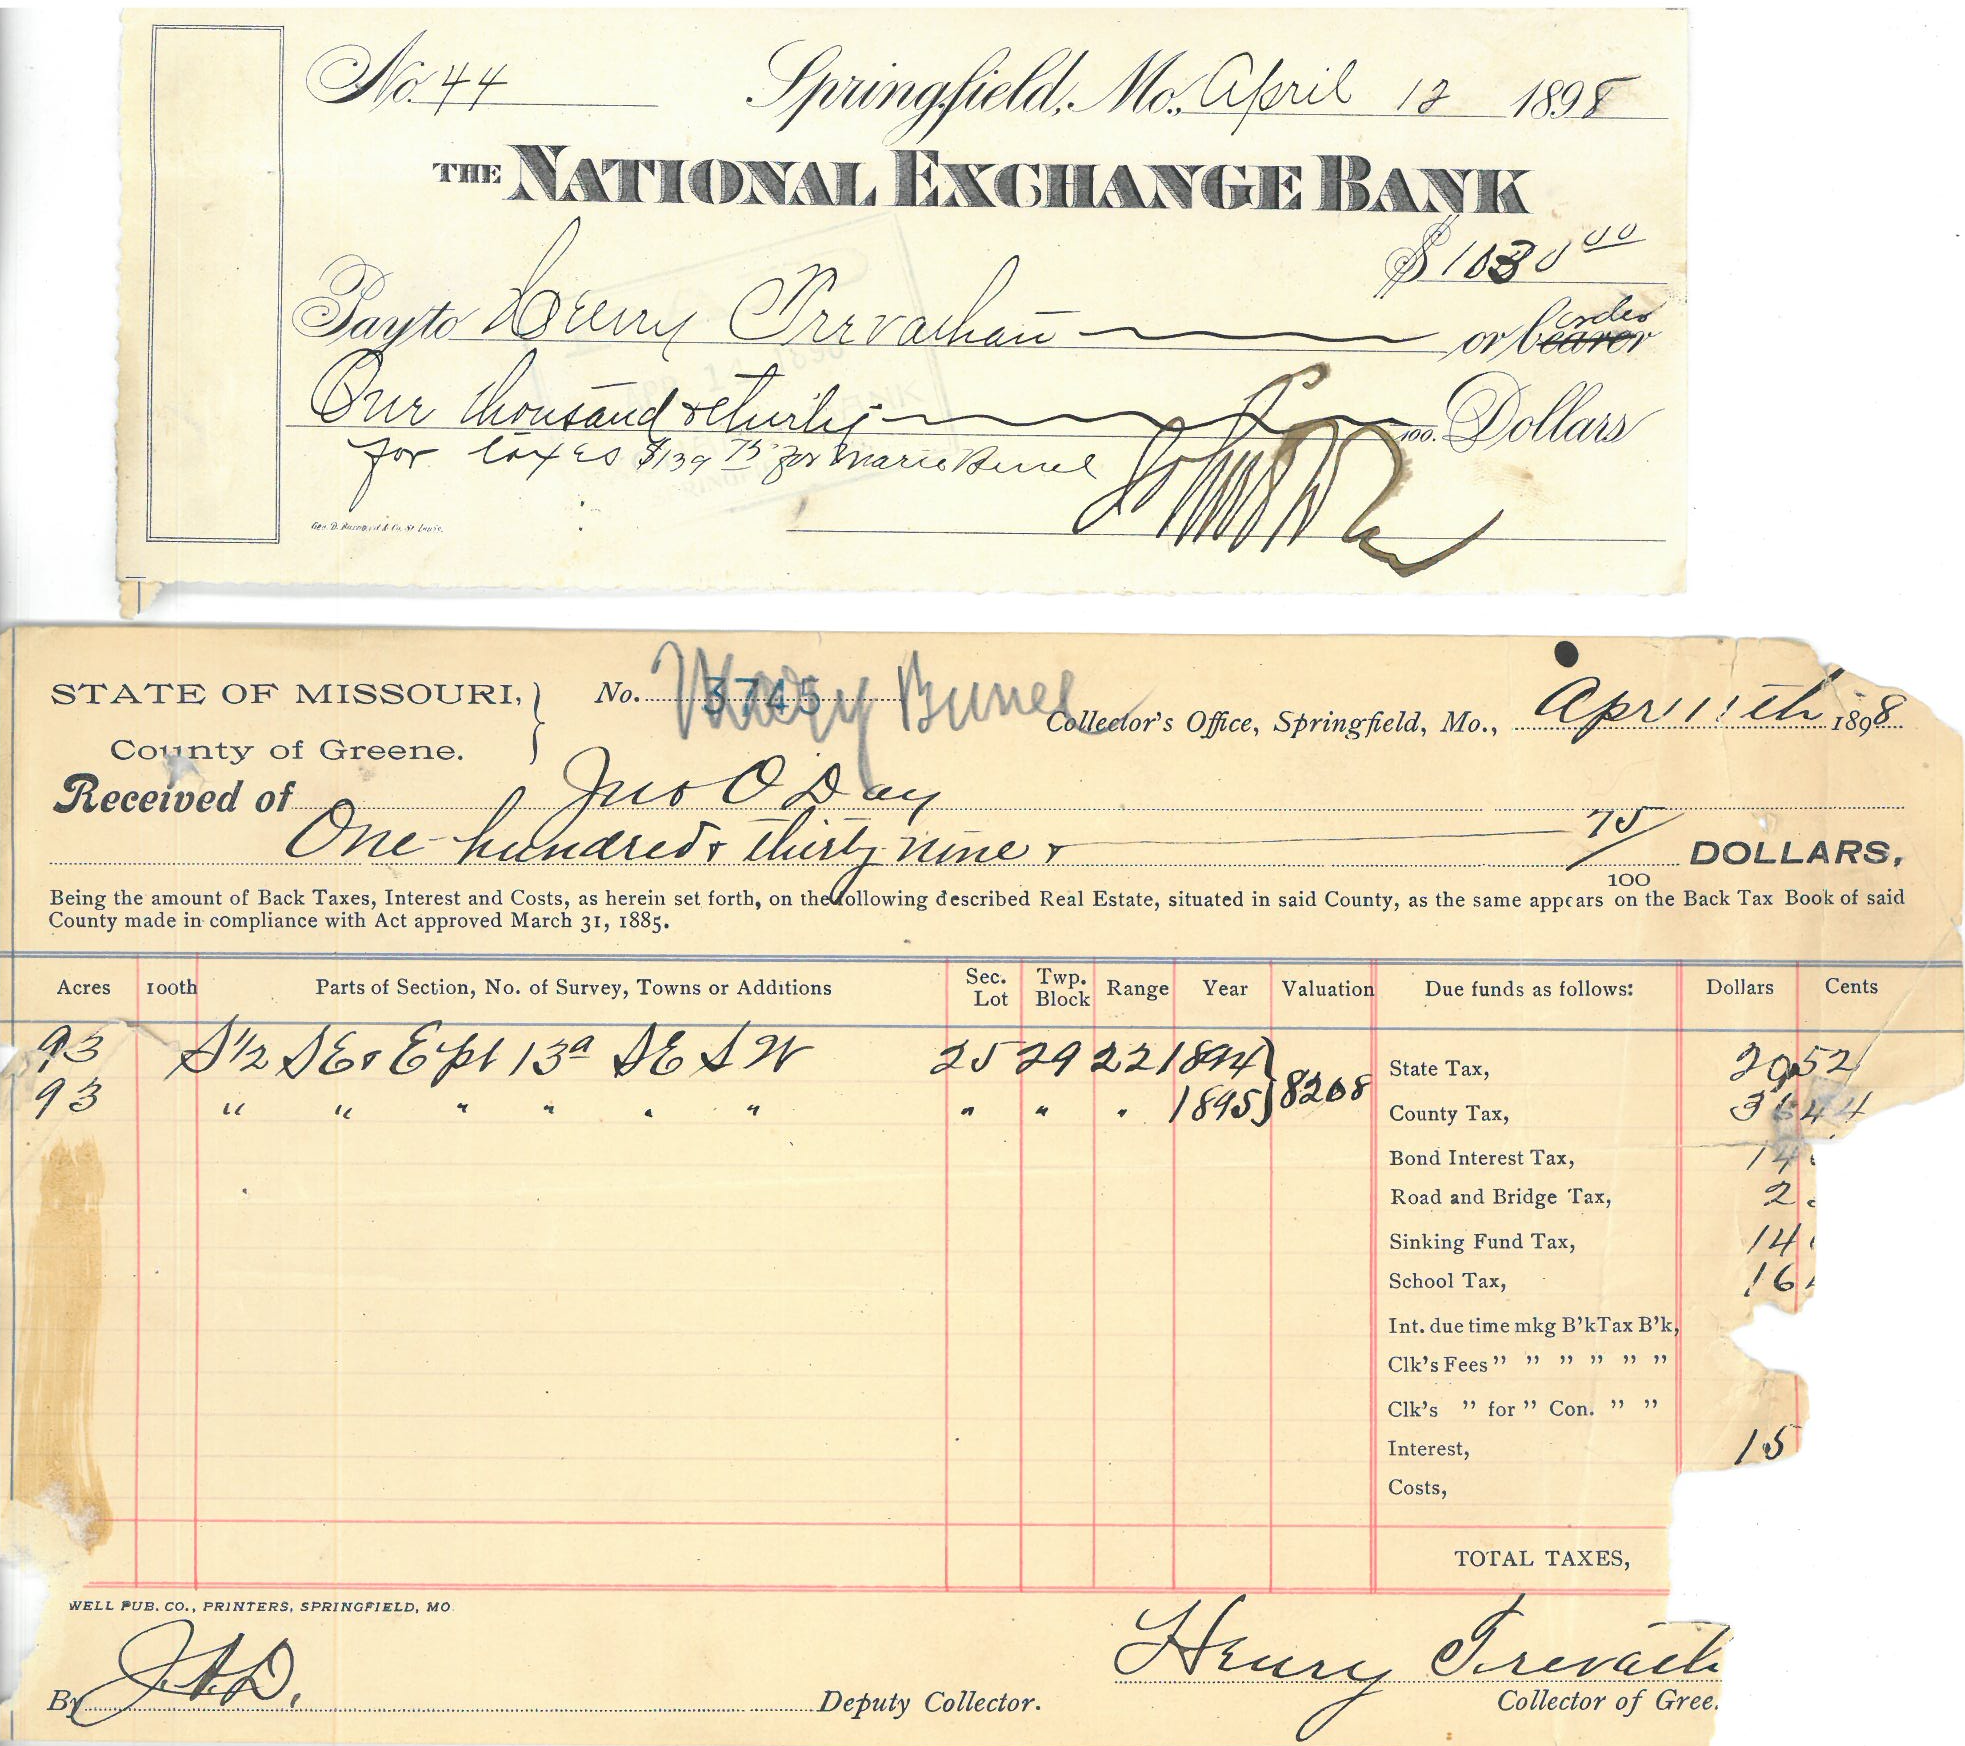 No. 44 Springfield, Mo., April 12 1898
THE NATIONAL EXCHANGE BANK
$ 1030 00
Pay to Henry Trevathan or bearer order
One thousand & thirty 100. Dollars
for taxes $139 75 for Marie Bunel
Geo. D. Barnard & Co. St. Louis.
STATE OF MISSOURI,
County of Greene.
No. 3745 Mary Bunel
Collector's Office, Springfield, Mo., Apr 11th 1898
Received of Jno O Day
One hundred & thirty nine & 75/100 DOLLARS,
Being the amount of Back Taxes, Interest and Costs, as herein set forth, on the following described Real Estate, situated in said County, as the same appears on the Back Tax Book of said
County made in compliance with Act approved March 31, 1885.
Acres 100th Parts of Section, No. of Survey, Towns or Additions Sec. Lot Twp. Block Range Year Valuation Due funds as follows: Dollars Cents
93 S 1/2 SE & E pt 13a SE SW 25 29 22 1894 8208 State Tax, 20 52
93 " " " " " " " " " 1895 County Tax, 44
Bond Interest Tax, 14
Road and Bridge Tax, 2
Sinking Fund Tax, 14
School Tax, 16
Int. due time mkg B'k Tax B'k,
Clk's Fees " " " " " "
Clk's " for " Con. " "
Interest, 15
Costs,
TOTAL TAXES,
WELL PUB. CO., PRINTERS, SPRINGFIELD, MO
By J.A.D. Deputy Collector.
Henry Trevath
Collector of Gree